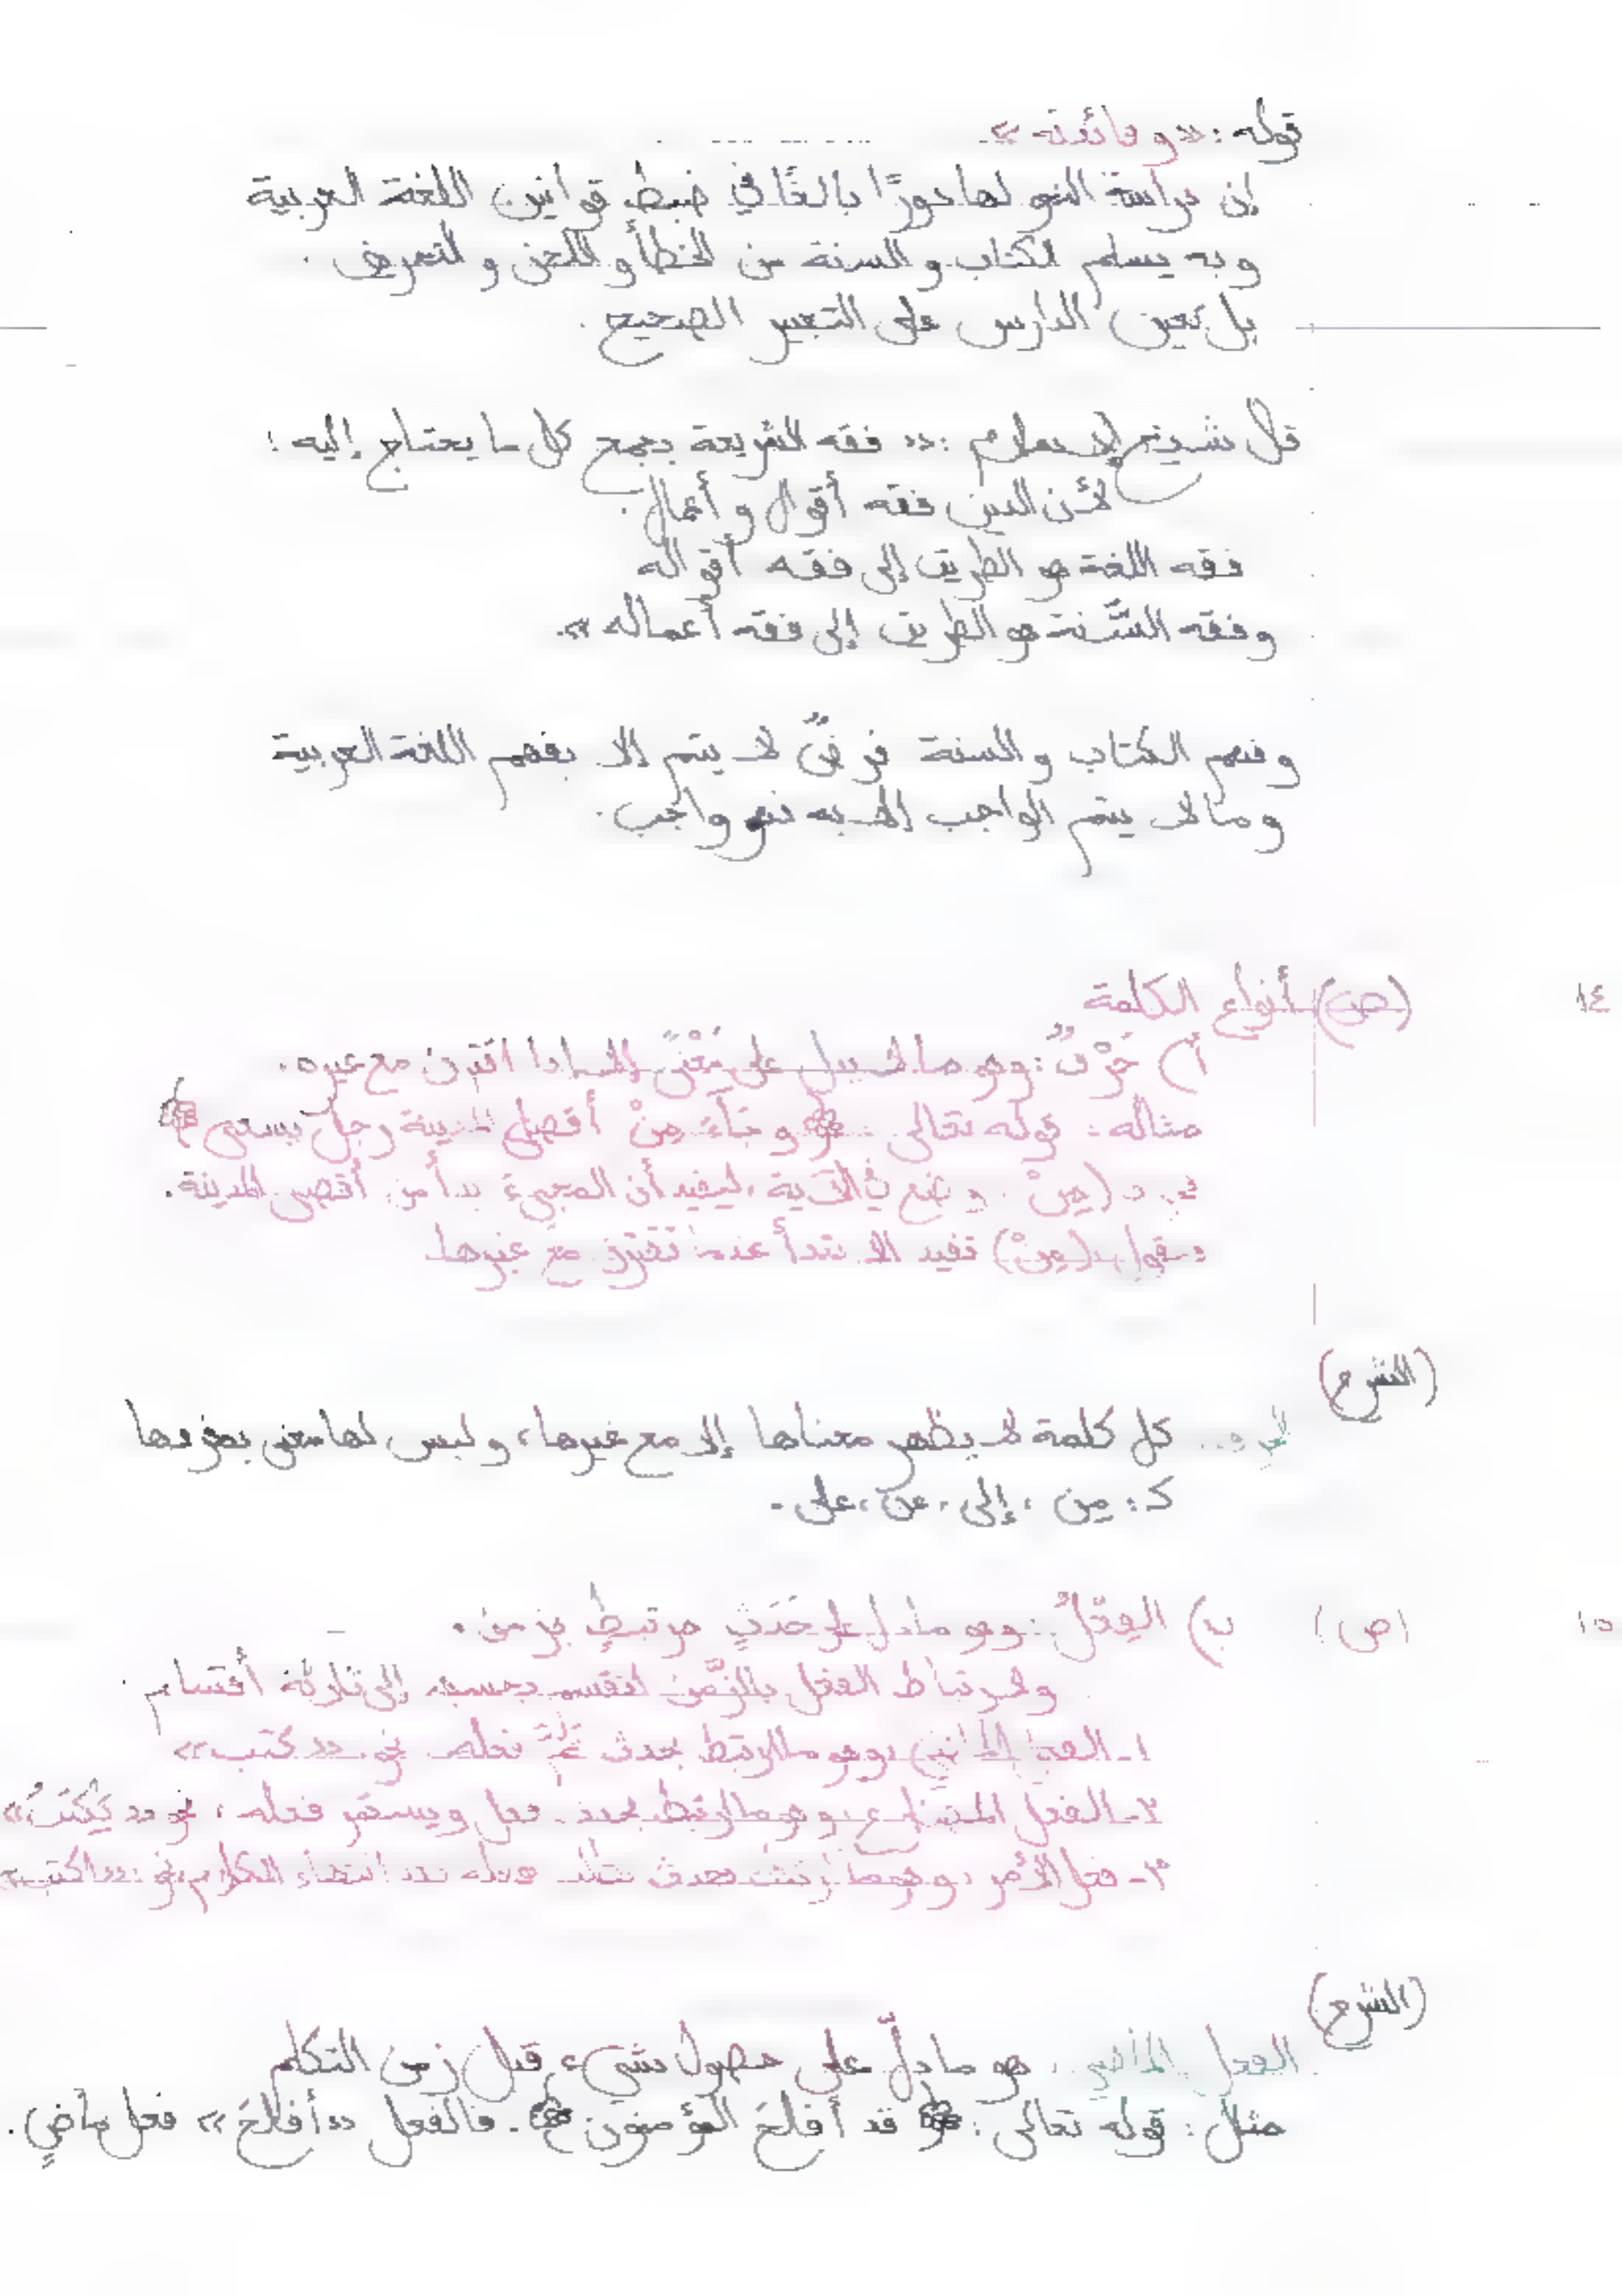 قوله: «و فائدته».
إن دراسة النحو لها دورًا بالغًا في ضبط قوانين اللغة العربية
وبه يسلم الكتاب والسنة من الخطأ واللحن والتحريف.
بل تعين الدارس على التعبير الصحيح.
قال شيخ الإسلام: «فقه الشريعة يجمع كل ما يحتاج إليه؛
لأن الدين فقه أقوال وأعمال.
ففقه اللغة هو الطريق إلى فقه أقواله
وفقه السُّنة هو الطريق إلى فقه أعماله».
وفهم الكتاب والسنة فرضٌ لا يتم إلا بفهم اللغة العربية
وما لا يتم الواجب إلا به فهو واجب.
١٤ (ص) أنواع الكلمة
أ) حَرْفٌ: وهو ما لا يدل على مَعْنًى إلا إذا اقترن مع غيره.
مثاله: قوله تعالى: ﴿وجَاءَ مِنْ أقصى المدينة رجل يسعى﴾
(مِنْ) وضع في الآية، ليفيد أن المجيء بدأ من أقصى المدينة.
(مِنْ) تفيد الابتدأ عندما تقترن مع غيرها
(الشرح)
الحرف: كل كلمة لا يظهر معناها إلا مع غيرها، وليس لها معنى بمفردها
كـ: مِن، إلى، عن، على.
١٥ (ص) ب) الفِعْلُ: وهو ما دل على حَدَثٍ مرتبطٍ بزمن.
ولارتباط الفعل بالزَّمن انقسم بحسبه إلى ثلاثة أقسام
١- الفعل الماضي: وهو ما ارتبط بحدث تَمَّ فعله نحو: «كتب»
٢- الفعل المضارع: وهو ما ارتبط بحدث فعل ويستمر فعله، نحو «يَكْتُبُ»
٣- فعل الأمر: وهو ما ارتبط بحدث يطلب فعله بعد انتهاء الكلام نحو: «اكتب»
(الشرح)
الفعل الماضي: هو ما دلّ على حصول شيء قبل زمن التكلم
مثل: قوله تعالى: ﴿قد أفلحَ المؤمنون﴾. فالفعل «أفلحَ» فعل ماضٍ.